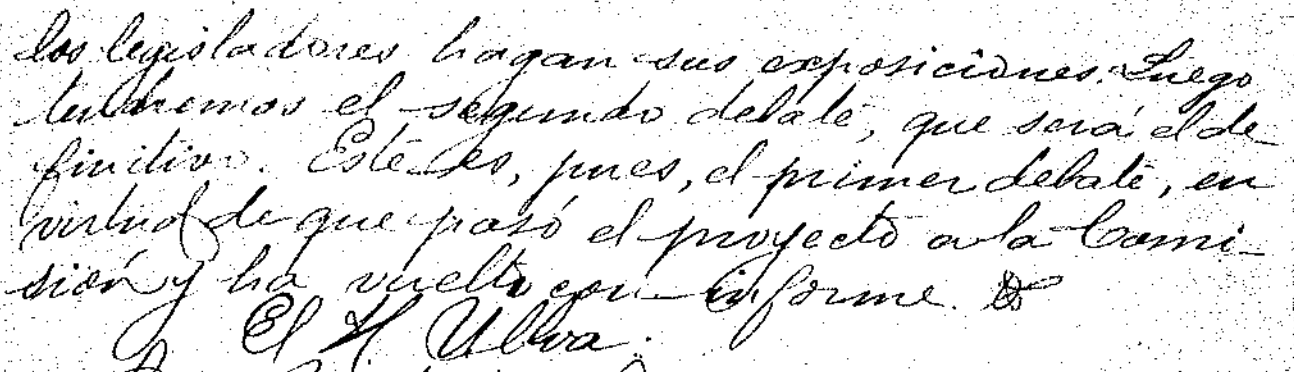 los legisladores hagan sus exposiciones. Luego
tendremos el segundo debate, que será el de
finitivo. Este es, pues, el primer debate, en
virtud de que pasó el proyecto a la Comi-
sión y ha vuelto con informe.
El H. Ulloa.